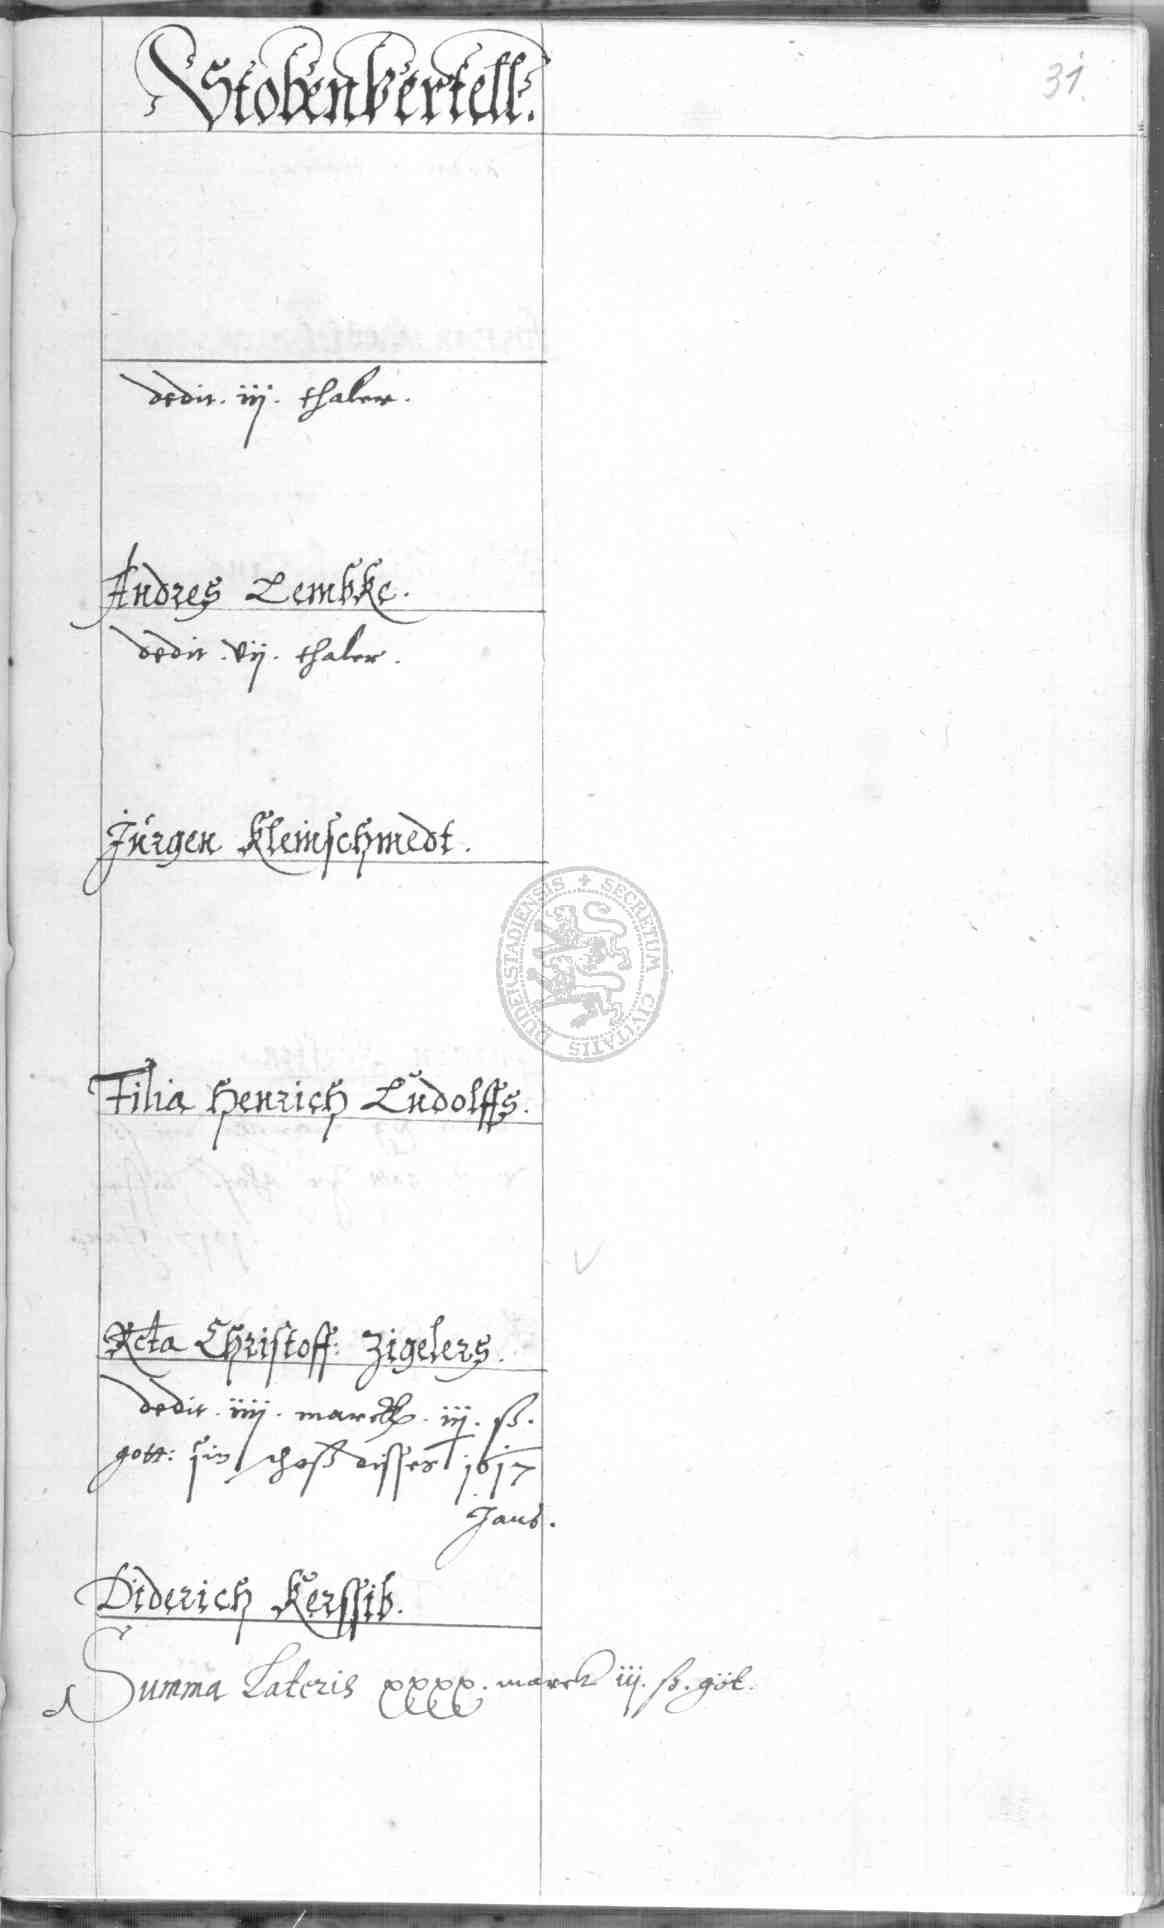 Stobenvertell.
31.
dedit. iij. thaler.
Andres Lembke.
dedit. vij. thaler.
Jürgen Kleinschmedt.
SECRETUM CIVITATIS DUDERSTADIENSIS
Filia Henrich Ludolffs.
Rcta Christoff: Zigelers.
dedit. iiij. marck. iij. ß.
gott: sin schoß disses 1617
Jars.
Diderich Kerssib.
Summa Lateris xxxx. marck iij. ß. göt.